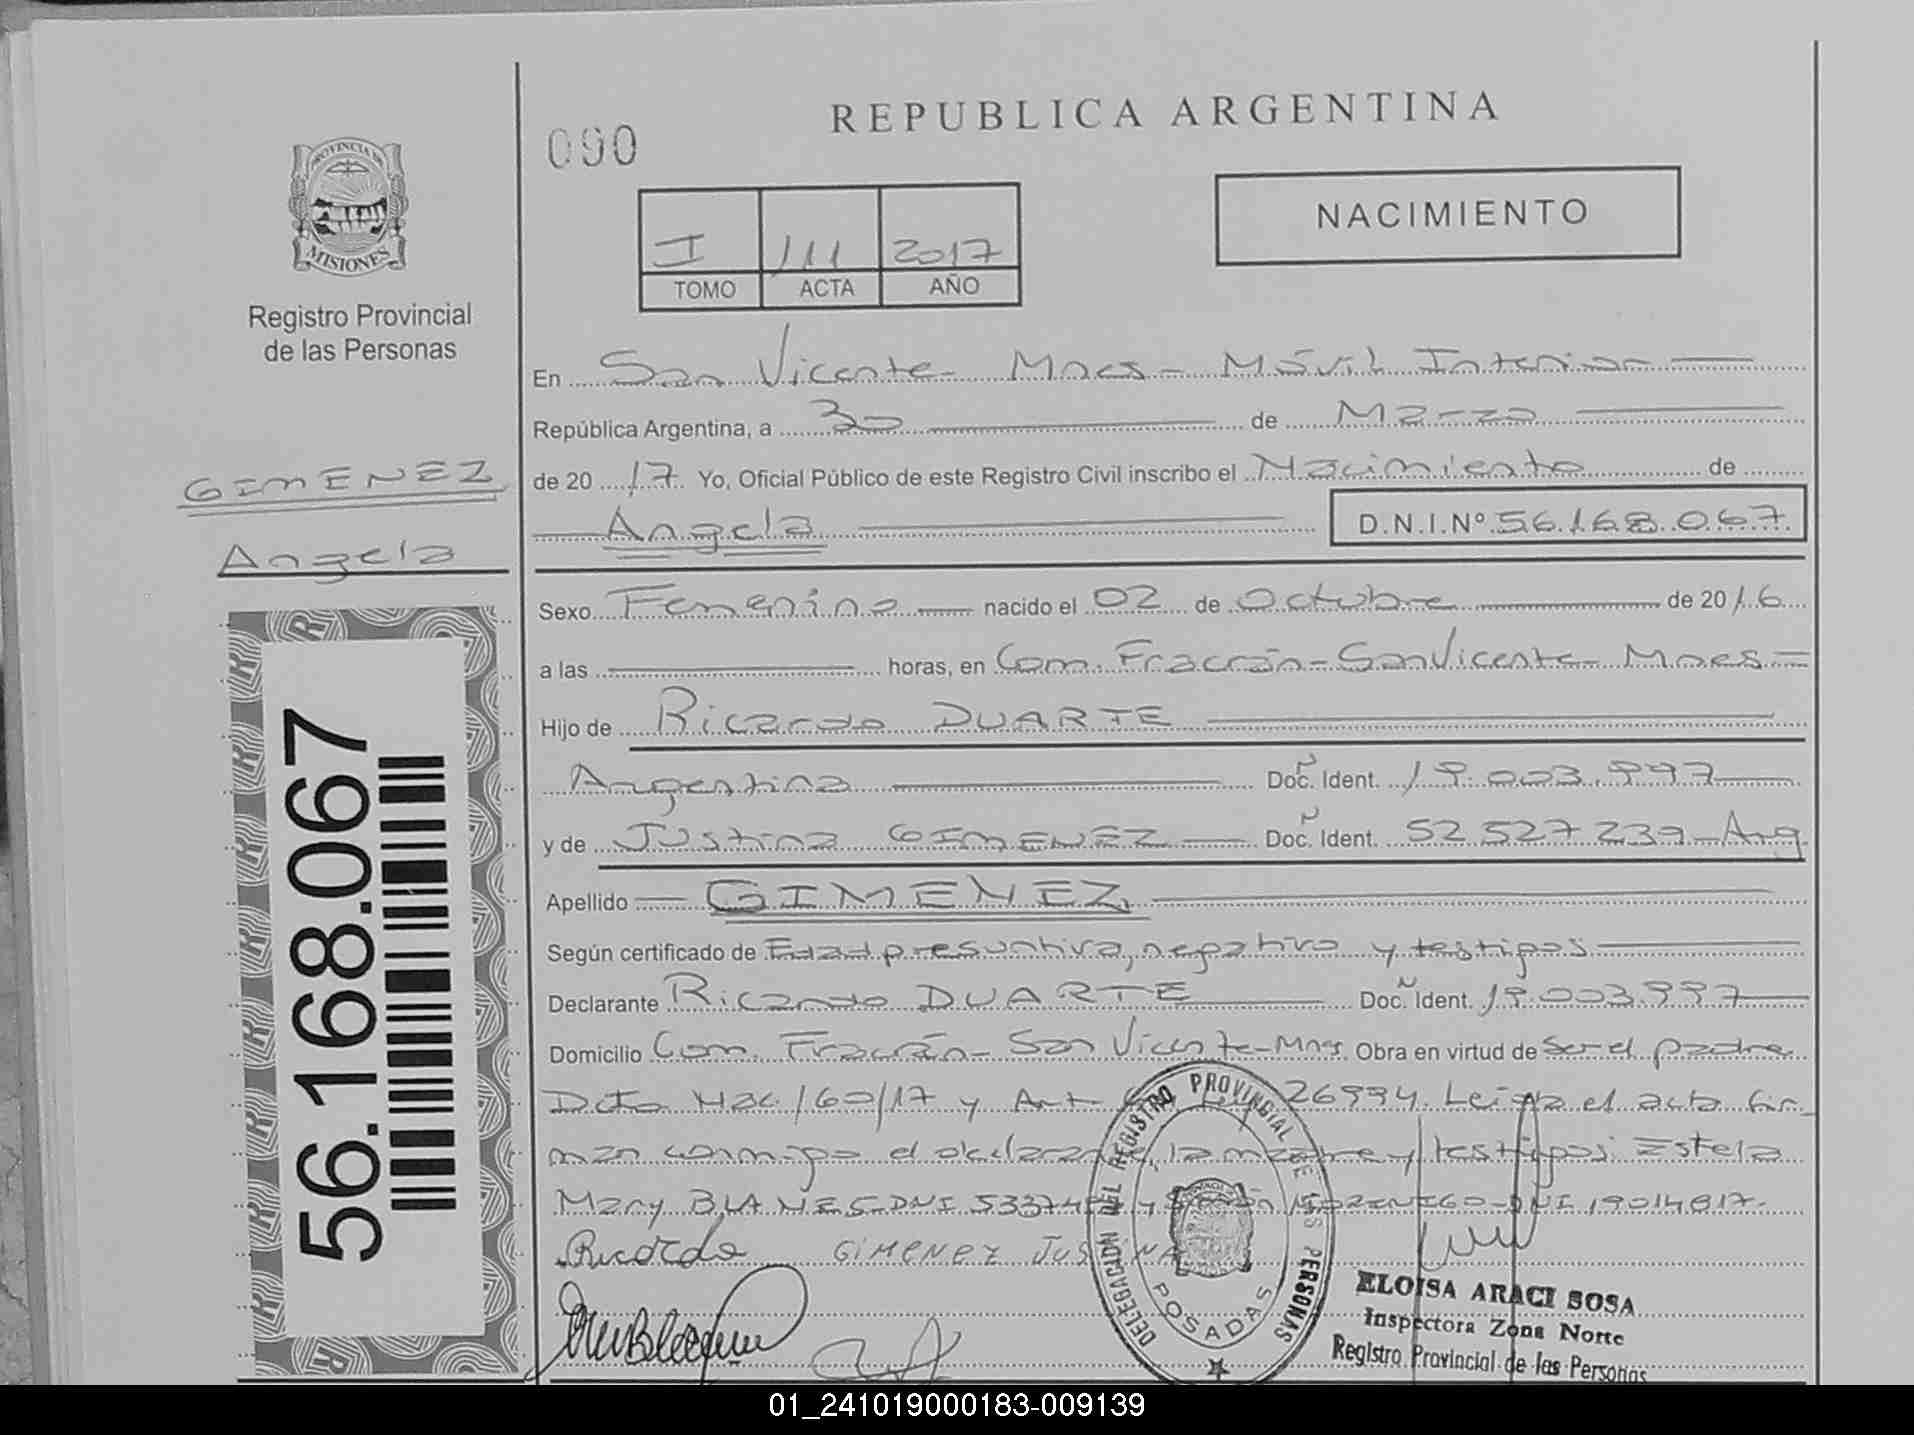 REPUBLICA ARGENTINA
000
PROVINCIA DE
MISIONES
Registro Provincial
de las Personas
I 111 2017
TOMO ACTA AÑO
NACIMIENTO
En San Vicente - Mnes - Móvil Interior
República Argentina, a 30 de Marzo
de 2017 Yo, Oficial Público de este Registro Civil inscribo el Nacimiento de
Angela D.N.I.Nº 56.168.067
GIMENEZ
Angela
Sexo Femenino nacido el 02 de Octubre de 2016
a las horas, en Com. Fracrán - San Vicente - Mnes -
Hijo de Ricardo DUARTE
Argentina Doc. Ident. 19.003.997
y de Justina GIMENEZ Doc. Ident. 52.527.239 - Arg
Apellido GIMENEZ
Según certificado de Edad presuntiva, negativo y testigos
Declarante Ricardo DUARTE Doc. Ident. 19.003.997
Domicilio Com. Fracrán - San Vicente - Mns. Obra en virtud de ser el padre
Dcto Nac. 160/17 y Art 26994. Leída el acta fir-
man conmigo el declarante, la madre y testigos: Estela
Mary BLANES - DNI y - DNI 19014817.
Ricardo GIMENEZ JUSTINA
DELEGACION DEL REGISTRO PROVINCIAL DE LAS PERSONAS
POSADAS
ELOISA ARACI SOSA
Inspectora Zona Norte
Registro Provincial de las Personas
56.168.067
01_241019000183-009139